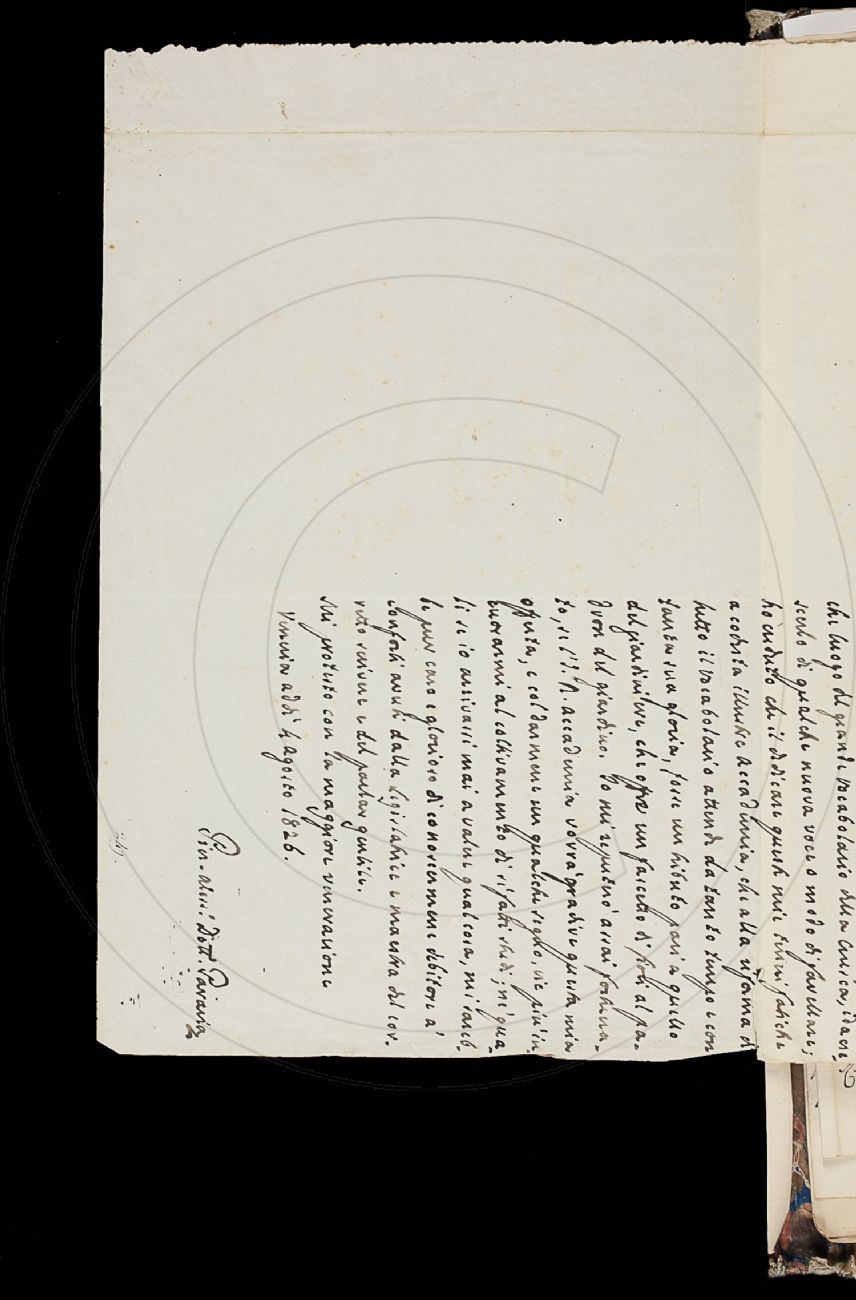 che luogo del grande vocabolario della Crusca, ed a ac-
scerlo di qualche nuova voce o modo di favellare;
ho creduto che il dedicare queste mie tenui fatiche
a codesta illustre Accademia, che alla riforma di
tutto il vocabolario attende da tanto tempo e con
tanta sua gloria, fosse un tributo pari a quello
del giardiniere, che offre un fascetto di fiori al pa-
dron del giardino. Io mi reputerò assai fortuna-
to, se l'I. R. Accademia vorrà gradire questa mia
offerta, e col darmene un qualche segno, vie più in-
cuorarmi al coltivamento di sì fatti studi; nè qua
li se io arrivassi mai a valere qual cosa, mi sareb-
be pur caro e glorioso di conoscermene debitore a'
conforti avuti dalla legislatrice e maestra del cor-
retto scrivere e del parlar gentile.
Mi protesto con la maggiore venerazione
Venezia addì 4 agosto 1826.
Pier-Aless.º Dott. Paravia